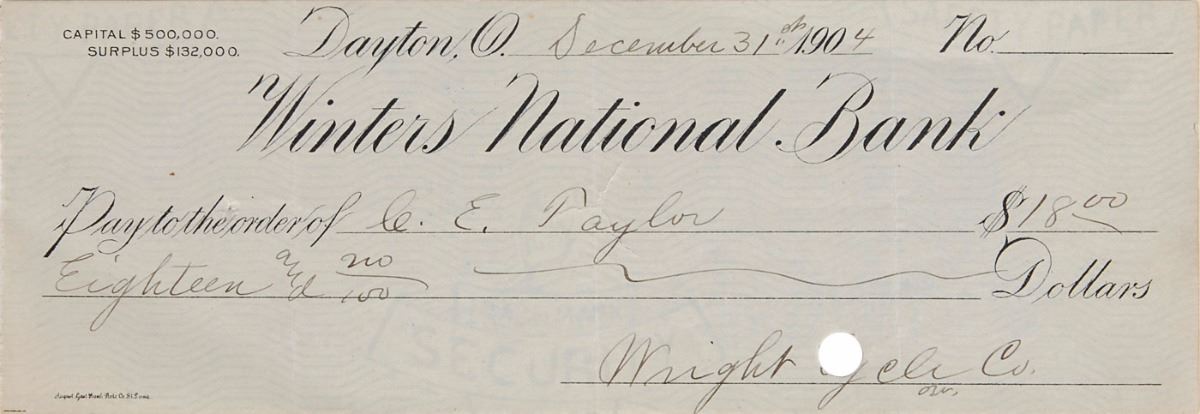 CAPITAL $500,000.
SURPLUS $132,000.
Dayton, O. December 31st 1904 No.
Winters National Bank
Pay to the order of C. E. Taylor $18.00
Eighteen and no/100 Dollars
Wright ycle Co.